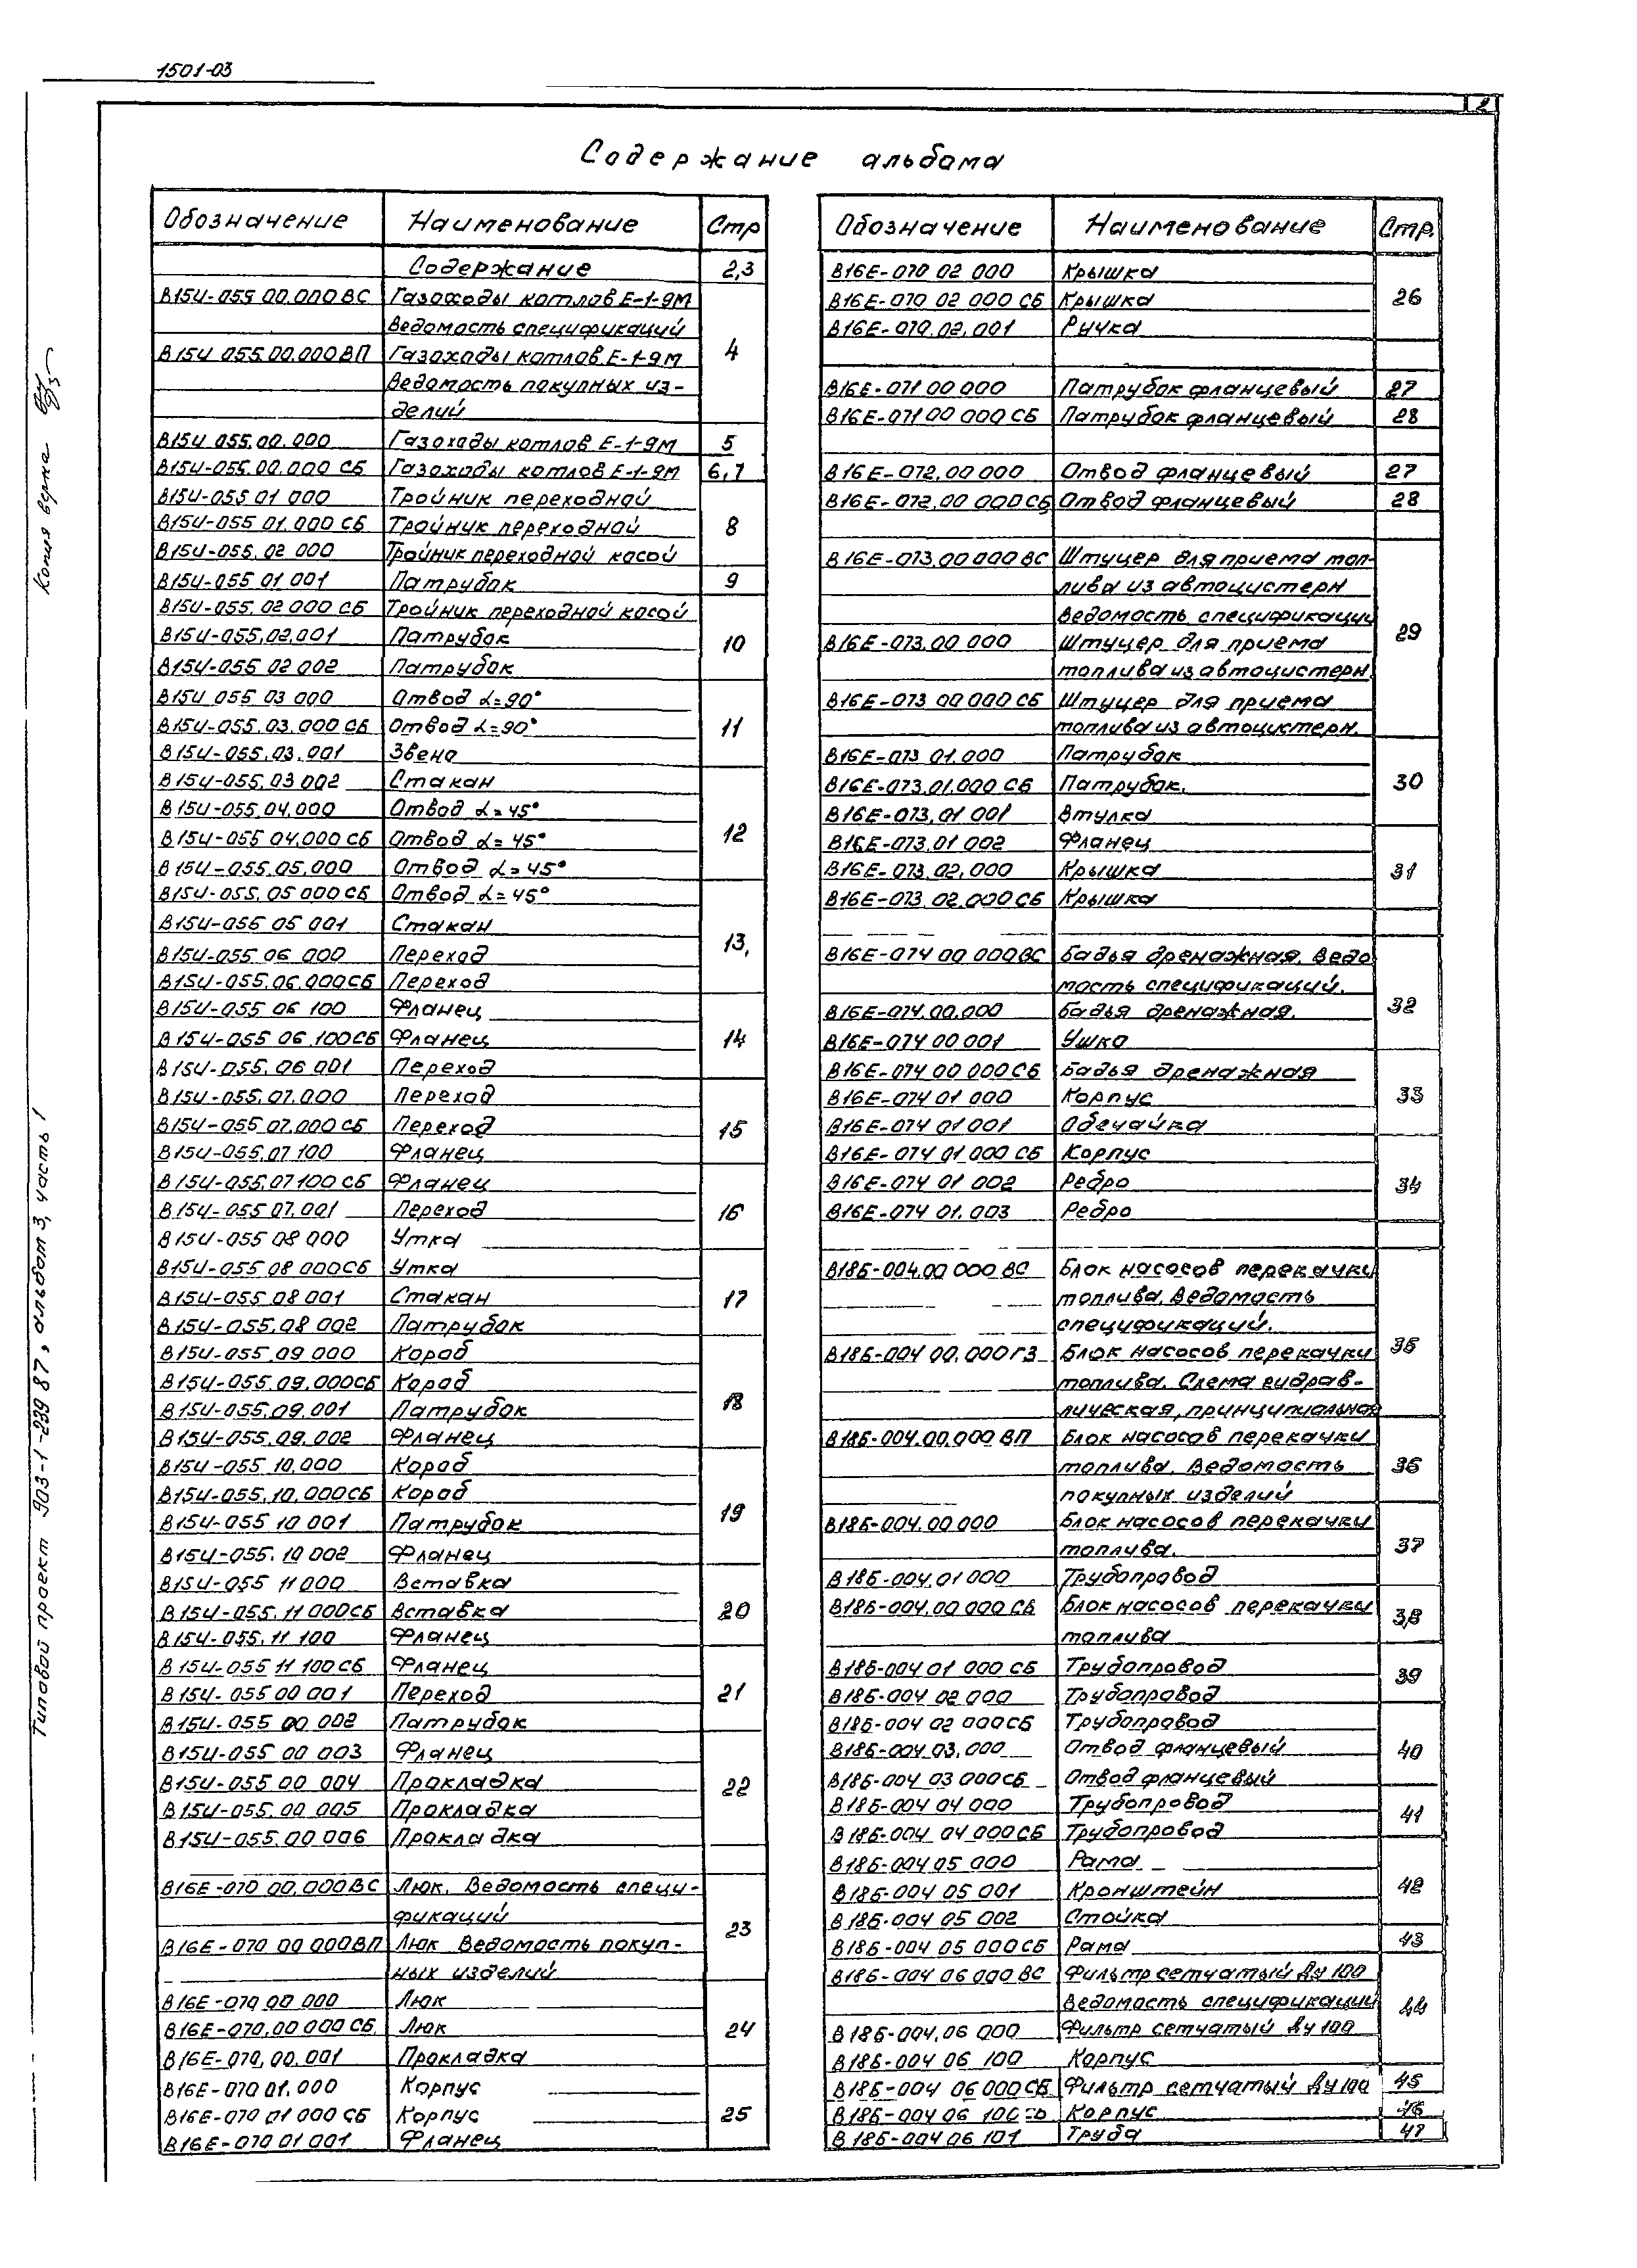 1501-03
2
Содержание альбома
Обозначение Наименование Стр
Содержание 2,3
В15Ч-055 00.000 ВС Газоходы котлов Е-1-9М
Ведомость спецификаций
4
В15Ч 055.00.000 ВП Газоходы котлов Е-1-9М
Ведомость покупных из-
делий
В15Ч 055.00.000 Газоходы котлов Е-1-9М 5
В15Ч-055.00.000 СБ Газоходы котлов Е-1-9М 6,7
В15Ч-055 01 000 Тройник переходной
В15Ч-055 01.000 СБ Тройник переходной 8
В15Ч-055.02 000 Тройник переходной косой
В15Ч-055 01 001 Патрубок 9
В15Ч-055.02 000 СБ Тройник переходной косой
В15Ч-055.02.001 Патрубок 10
В15Ч-055 02 002 Патрубок
В15Ч 055 03 000 Отвод α=90°
В15Ч-055.03.000 СБ Отвод α=90° 11
В15Ч-055.03.001 Звено
В15Ч-055.03 002 Стакан
В15Ч-055.04.000 Отвод α=45°
В15Ч-055 04.000 СБ Отвод α=45° 12
В15Ч-055.05.000 Отвод α=45°
В15Ч-055.05 000 СБ Отвод α=45°
В15Ч-055 05 001 Стакан
13,
В15Ч-055 06 000 Переход
В15Ч-055.06.000СБ Переход
В15Ч-055 06 100 Фланец
В15Ч-055 06.100СБ Фланец 14
В15Ч-055.06 001 Переход
В15Ч-055.07.000 Переход
В15Ч-055 07.000 СБ Переход 15
В15Ч-055.07 100 Фланец
В15Ч-055.07 100 СБ Фланец
В15Ч-055 07.001 Переход 16
В15Ч-055 08 000 Утка
В15Ч-055 08 000СБ Утка
В15Ч-055 08 001 Стакан 17
В15Ч-055.08 002 Патрубок
В15Ч-055.09 000 Короб
В15Ч-055.09.000СБ Короб
В15Ч-055.09.001 Патрубок 18
В15Ч-055.09.002 Фланец
В15Ч-055 10.000 Короб
В15Ч-055.10.000СБ Короб
В15Ч-055 10 001 Патрубок 19
В15Ч-055.10 002 Фланец
В15Ч-055 11 000 Вставка
В15Ч-055.11 000СБ Вставка 20
В15Ч-055.11 100 Фланец
В15Ч-055 11 100 СБ Фланец
В15Ч-055 00 001 Переход 21
В15Ч-055 00 002 Патрубок
В15Ч-055 00 003 Фланец
В15Ч-055 00 004 Прокладка 22
В15Ч-055.00 005 Прокладка
В15Ч-055.00 006 Прокладка
В16Е-070 00.000ВС Люк. Ведомость специ-
фикаций
23
В16Е-070 00 000ВП Люк Ведомость покуп-
ных изделий
В16Е-070 00 000 Люк
В16Е-070.00 000 СБ Люк 24
В16Е-070.00.001 Прокладка
В16Е-070 01.000 Корпус
В16Е-070 01 000 СБ Корпус 25
В16Е-070 01 001 Фланец
Обозначение Наименование Стр.
В16Е-070 02 000 Крышка
В16Е-070 02 000 СБ Крышка 26
В16Е-070.02.001 Ручка
В16Е-071 00 000 Патрубок фланцевый 27
В16Е-071 00 000 СБ Патрубок фланцевый 28
В16Е-072.00 000 Отвод фланцевый 27
В16Е-072.00 000СБ Отвод фланцевый 28
В16Е-073.00 000 ВС Штуцер для приема топ-
лива из автоцистерн
Ведомость спецификации
29
В16Е-073.00 000 Штуцер для приема
топлива из автоцистерн.
В16Е-073 00 000 СБ Штуцер для приема
топлива из автоцистерн.
В16Е-073 01.000 Патрубок
В16Е-073.01.000 СБ Патрубок. 30
В16Е-073.01 001 Втулка
В16Е-073.01 002 Фланец
В16Е-073.02.000 Крышка 31
В16Е-073.02.000СБ Крышка
В16Е-074 00 000ВС Бадья дренажная. Ведо
мость спецификаций.
32
В16Е-074.00.000 Бадья дренажная.
В16Е-074 00 001 Ушко
В16Е-074 00 000СБ Бадья дренажная
В16Е-074 01 000 Корпус 33
В16Е-074 01 001 Обечайка
В16Е-074 01 000 СБ Корпус
В16Е-074 01 002 Ребро 34
В16Е-074 01.003 Ребро
В18Б-004.00 000 ВС Блок насосов перекачки
топлива. Ведомость
спецификаций.
35
В18Б-004 00.000Г3 Блок насосов перекачки
топлива. Схема гидрав-
лическая, принципиальная
В18Б-004.00.000 ВП Блок насосов перекачки
топлива. Ведомость 36
покупных изделий
В18Б-004.00 000 Блок насосов перекачки
топлива. 37
В18Б-004.01 000 Трубопровод
В18Б-004.00 000 СБ Блок насосов перекачки
38
топлива
В18Б-004 01 000 СБ Трубопровод
39
В18Б-004 02 000 Трубопровод
В18Б-004 02 000СБ Трубопровод
В18Б-004 03.000 Отвод фланцевый 40
В18Б-004 03 000СБ Отвод фланцевый
В18Б-004 04 000 Трубопровод
41
В18Б-004 04 000СБ Трубопровод
В18Б-004 05 000 Рама
В18Б-004 05 001 Кронштейн 42
В18Б-004 05 002 Стойка
В18Б-004 05 000СБ Рама 43
В18Б-004 06 000 ВС Фильтр сетчатый Ду 100
Ведомость спецификаций
44
В18Б-004.06 000 Фильтр сетчатый Ду 100
В18Б-004 06 100 Корпус
В18Б-004 06 000 СБ Фильтр сетчатый Ду 100 45
В18Б-004 06 100 СБ Корпус 46
В18Б-004 06 101 Труба 47
Копия верна
Типовой проект 903-1-239 87, альбом 3, часть 1